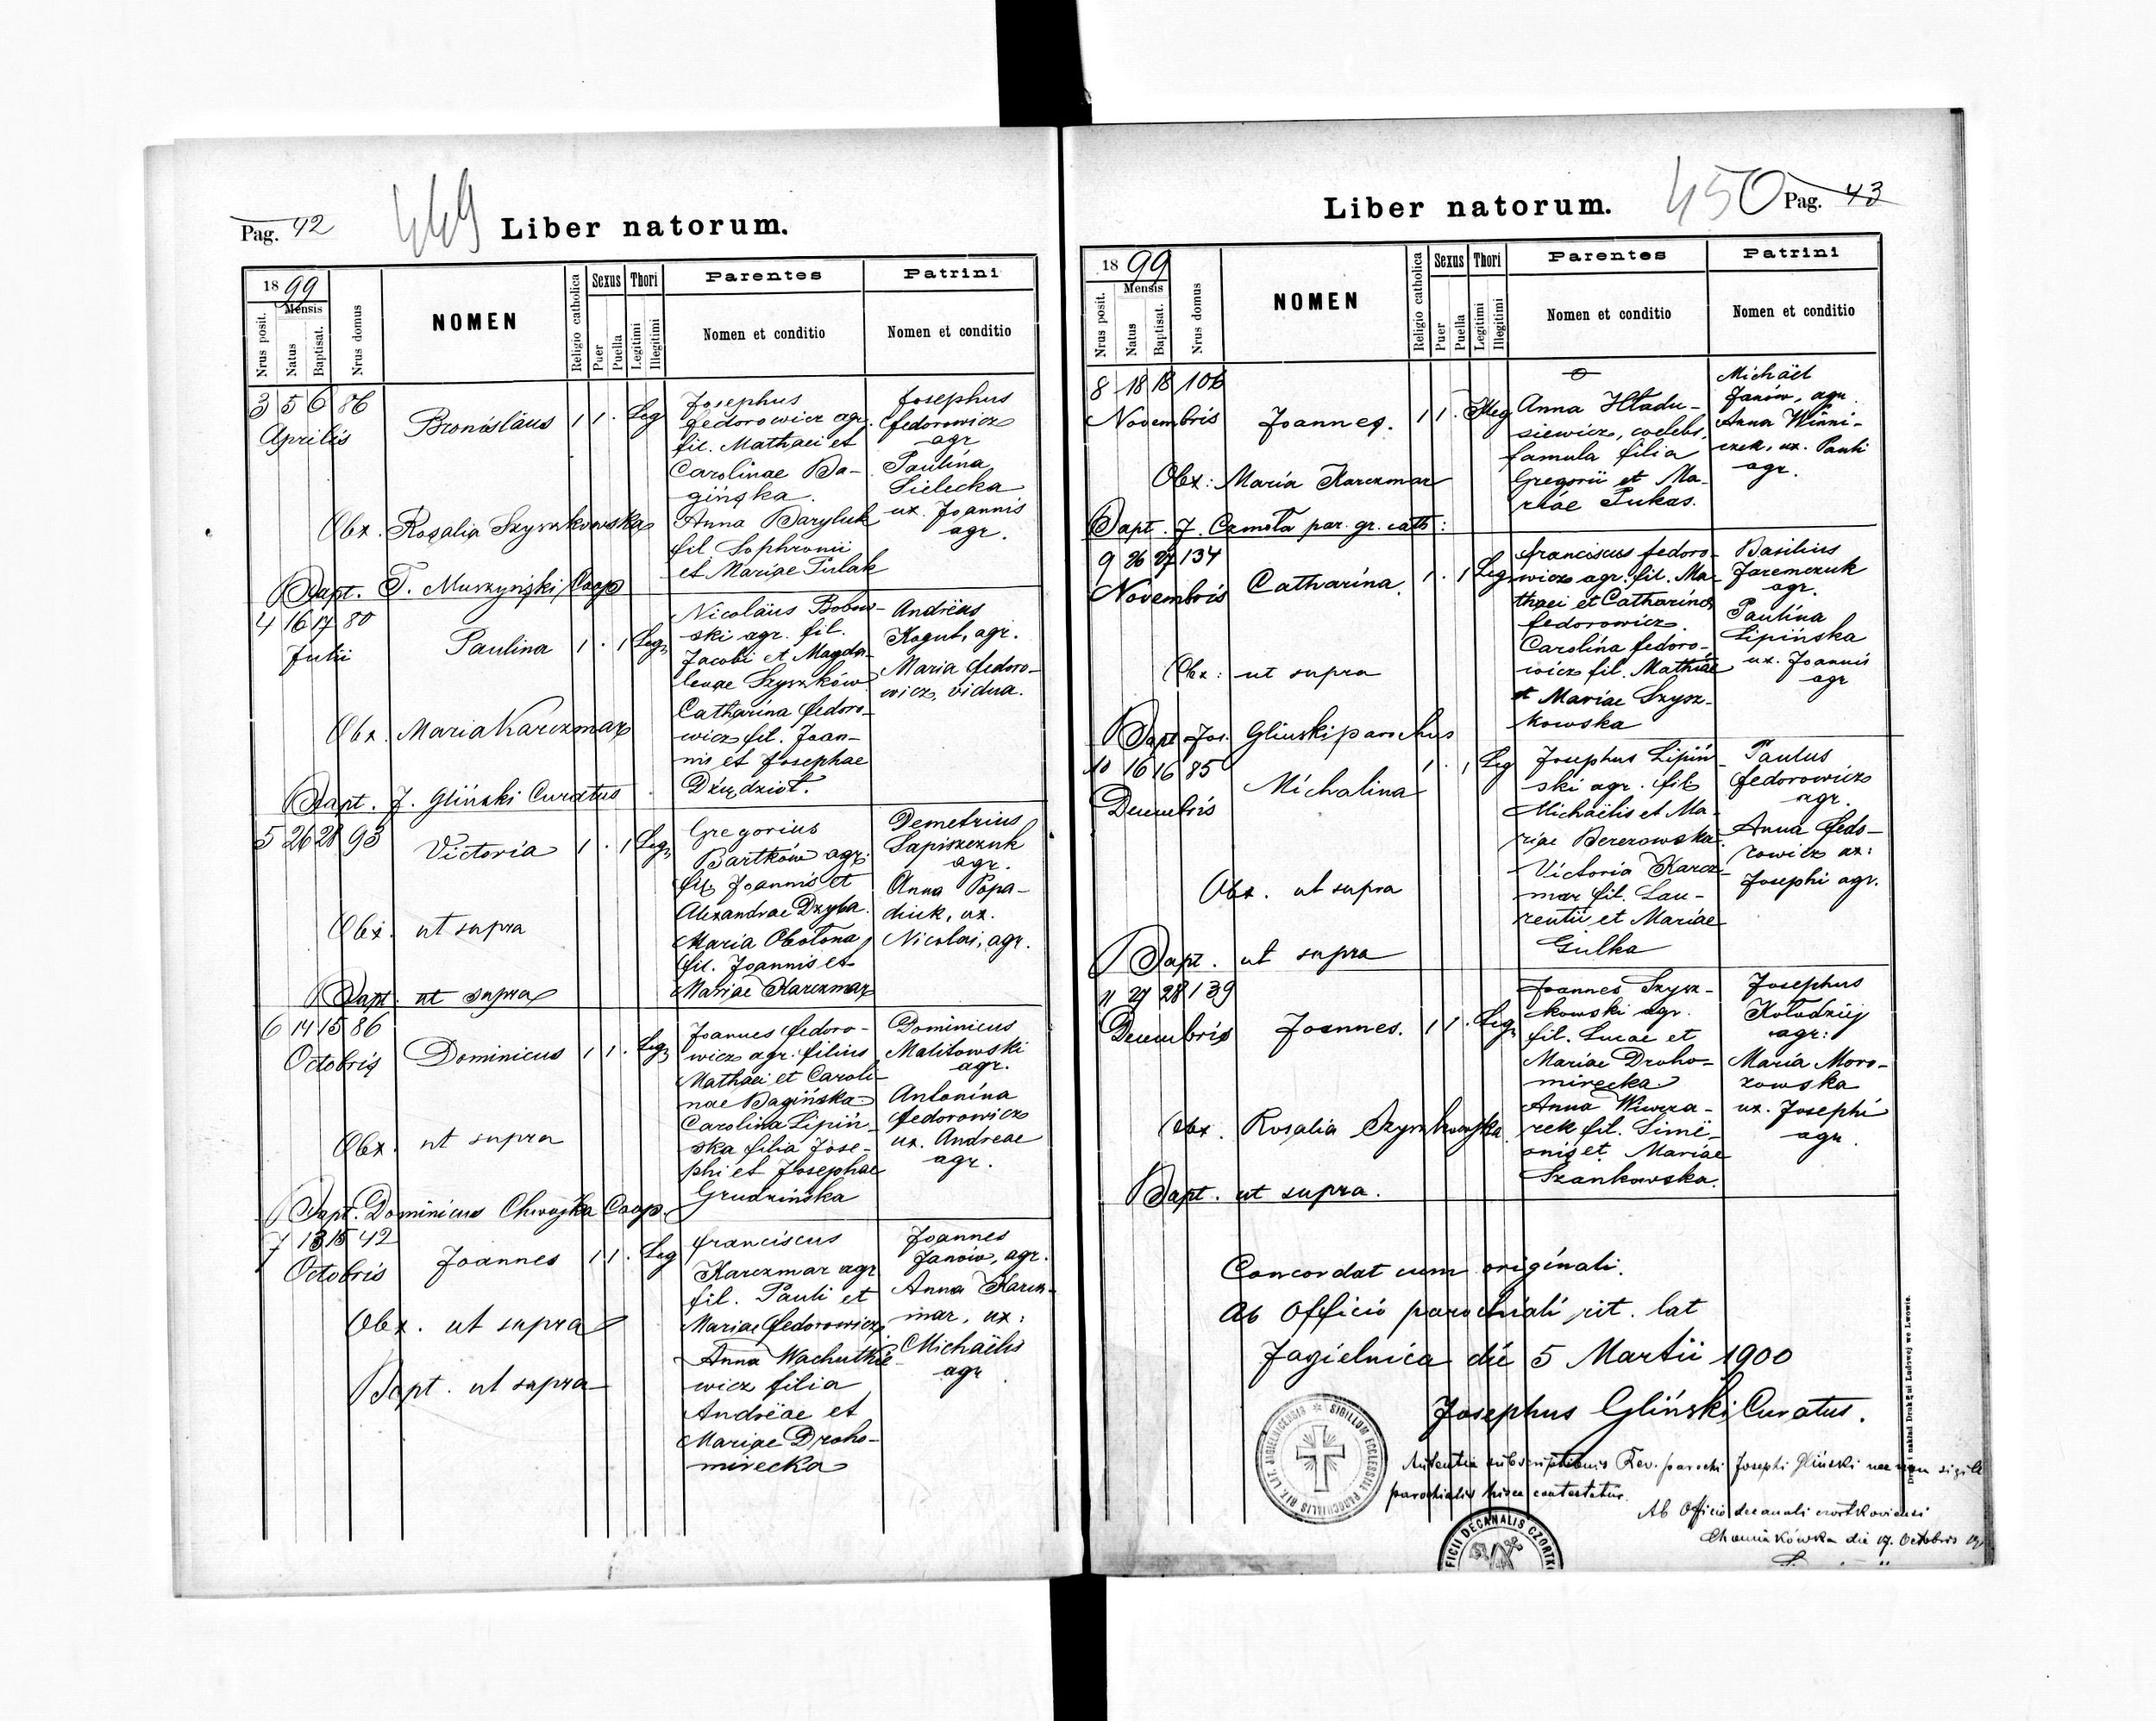 Pag. 42
449
Liber natorum.
1899
Mensis
Nrus posit.
Natus
Baptisat.
Nrus domus
NOMEN
Religio catholica
Sexus
Puer
Puella
Thori
Legitimi
Illegitimi
Parentes
Nomen et conditio
Patrini
Nomen et conditio
3 5 6 86
Aprilis
Bronislaus 1 1 . Leg
Josephus
Fedorowicz agr.
fil. Mathaei et
Carolinae Ba-
gińska.
Anna Baryluk
fil. Sophronii
et Mariae Pulak
Josephus
Fedorowicz
agr
Paulina
Sielecka
ux. Joannis
agr.
Obx. Rosalia Szyszkowska
Bapt. T. Muszyński Coop
4 16 17 80
Julii
Paulina 1 . 1 Leg
Nicolaus Bobow-
ski agr. fil.
Jacobi et Magda-
lenae Szyszków
Catharina Fedoro-
wicz fil. Joan-
nis et Josephae
Andreas
Kogut, agr.
Maria Fedoro-
wicz, vidua.
Obx. Maria Karczmar
Bapt. J. Gliński Curatus
5 26 28 93
Victoria 1 . 1 Leg
Gregorius
Bartków agr.
fil. Joannis et
Alexandrae Dzyba.
Maria Obotona,
fil. Joannis et
Mariae Karczmar
Demetrius
Lapiszczuk
agr.
Anna Popa-
diuk, ux.
Nicolai, agr.
Obx. ut supra
Bapt. ut supra
6 14 15 86
Octobris
Dominicus 1 1 . Leg
Joannes Fedoro-
wicz agr. filius
Mathaei et Caroli-
nae Bagińska
Carolina Lipiń-
ska filia Jose-
phi et Josephae
Grudzińska
Dominicus
Malitowski
agr.
Antonina
Fedorowicz
ux. Andreae
agr.
Obx. ut supra
Bapt. Dominicus Coop.
7 13 15 42
Octobris
Joannes 1 1 . Leg
Franciscus
Karczmar agr
fil. Pauli et
Mariae Fedorowicz
Anna Wachutkie-
wicz filia
Andreae et
Mariae Droho-
mirecka
Joannes
Janów, agr.
Anna Karcz-
mar, ux:
Michaëlis
agr
Obx. ut supra
Bapt. ut supra
Liber natorum.
450
Pag. 43
1899
Mensis
Nrus posit.
Natus
Baptisat.
Nrus domus
NOMEN
Religio catholica
Sexus
Puer
Puella
Thori
Legitimi
Illegitimi
Parentes
Nomen et conditio
Patrini
Nomen et conditio
8 18 18 106
Novembris
Joannes. 1 1 . Illeg
Anna Hladu-
siewicz, coelebs,
famula filia
Gregorii et Ma-
riae Pukas.
Michäel
Janów, agr.
Anna Winni-
czek, ux. Pauli
agr.
Obx: Maria Karczmar
Bapt. J. Czmoła par. gr. cath:
9 26 27 134
Novembris
Catharina. 1 . 1 Leg
Franciscus Fedoro-
wicz agr. fil. Ma-
thaei et Catharina
Fedorowicz.
Carolina Fedoro-
wicz fil. Mathiae
et Mariae Szysz-
kowska
Basilius
Jaremczuk
agr.
Paulina
Lipińska
ux. Joannis
agr
Obx: ut supra
Bapt Jos. Gliński parochus
10 16 16 85
Decembris
Michalina 1 . 1 Leg
Josephus Lipiń-
ski agr. fil
Michaëlis et Ma-
riae Berezowska.
Victoria Karcz-
mar fil. Lau-
rentii et Mariae
Gulka
Paulus
Fedorowicz
agr.
Anna Fedo-
rowicz ux:
Josephi agr.
Obx. ut supra
Bapt. ut supra
11 27 28 139
Decembris
Joannes. 1 1 . Leg
Joannes Szysz-
kowski agr.
fil. Lucae et
Mariae Droho-
mirecka
Anna Wiwcza-
rek fil. Simë-
onis et Mariae
Szankowska.
Josephus
Kołodziej
agr:
Maria Moro-
zowska
ux. Josephi
agr.
Obx. Rosalia Szyszkowska
Bapt. ut supra.
Concordat cum originali.
Ab Officio parochiali rit. lat
Jagielnica die 5 Martii 1900
Josephus Gliński Curatus.
SIGILLUM ECCLESIAE PAROCHIALIS RIT. LAT. JAGIELNICENSIS
subscriptionis Rev. parochi Josephi Gliński nec non sigilli
parochialis hisce contestatur.
Ab Officio decanali czortkoviensi
die 17. Octobris
FICII DECANALIS CZORTK
nakład Drukarni Ludowej we Lwowie.